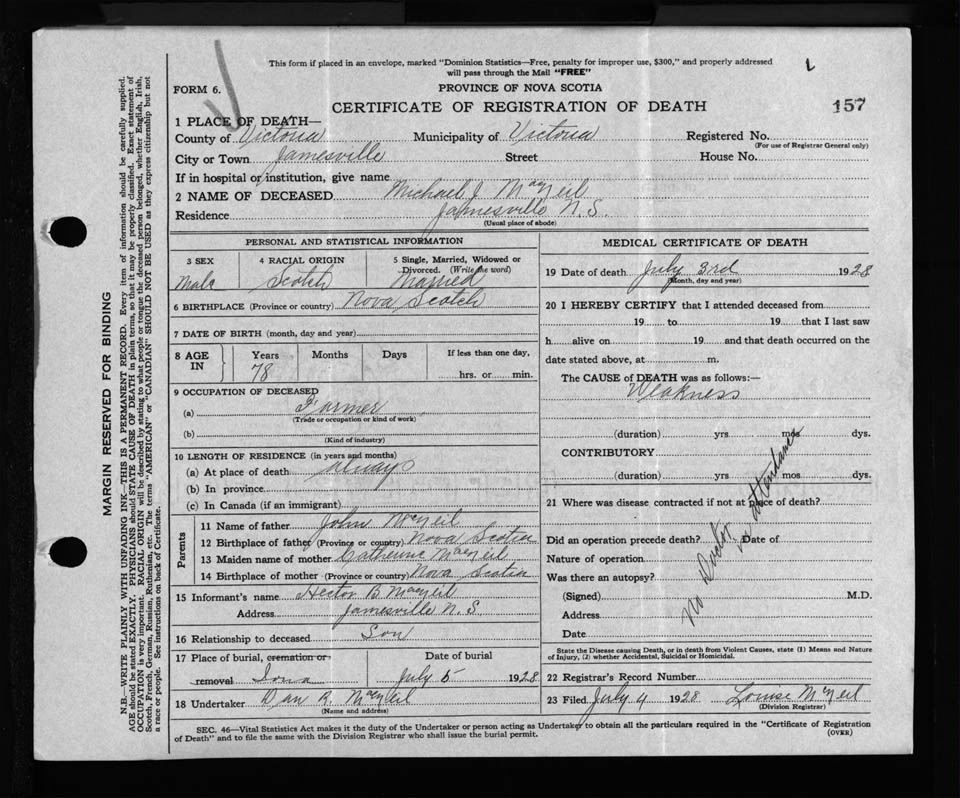 This form if placed in an envelope, marked "Dominion Statistics—Free, penalty for improper use, $300," and properly addressed
will pass through the Mail "FREE"
FORM 6.
PROVINCE OF NOVA SCOTIA
CERTIFICATE OF REGISTRATION OF DEATH
157
1 PLACE OF DEATH—
County of Victoria Municipality of Victoria Registered No.
(For use of Registrar General only)
City or Town Jamesville Street House No.
If in hospital or institution, give name
2 NAME OF DECEASED Michael J. MacNeil
Residence Jamesville N.S.
(Usual place of abode)
PERSONAL AND STATISTICAL INFORMATION
3 SEX 4 RACIAL ORIGIN 5 Single, Married, Widowed or
Divorced. (Write the word)
Male Scotch Married
6 BIRTHPLACE (Province or country) Nova Scotch
7 DATE OF BIRTH (month, day and year)
8 AGE IN Years Months Days If less than one day,
78 hrs. or min.
9 OCCUPATION OF DECEASED
(a) Farmer
(Trade or occupation or kind of work)
(b)
(Kind of industry)
10 LENGTH OF RESIDENCE (in years and months)
(a) At place of death always
(b) In province
(c) In Canada (if an immigrant)
Parents
11 Name of father John McNeil
12 Birthplace of father (Province or country) Nova Scotia
13 Maiden name of mother Catherine MacNeil
14 Birthplace of mother (Province or country) Nova Scotia
15 Informant's name Hector B. MacNeil
Address Jamesville N.S.
16 Relationship to deceased Son
17 Place of burial, cremation or Date of burial
removal Iona July 5 1928
18 Undertaker Dan R. MacNeil
(Name and address)
MEDICAL CERTIFICATE OF DEATH
19 Date of death July 3rd 1928
(Month, day and year)
20 I HEREBY CERTIFY that I attended deceased from
19 to 19 that I last saw
h alive on 19 and that death occurred on the
date stated above, at m.
The CAUSE of DEATH was as follows:—
Weakness
(duration) yrs mos dys.
CONTRIBUTORY
(duration) yrs mos dys.
21 Where was disease contracted if not at place of death?
Did an operation precede death? Date of
Nature of operation
Was there an autopsy?
(Signed) M.D.
Address
Date
No Doctor in attendance
State the Disease causing Death, or in death from Violent Causes, state (1) Means and Nature
of Injury, (2) whether Accidental, Suicidal or Homicidal.
22 Registrar's Record Number
23 Filed July 4 1928 Louise McNeil
(Division Registrar)
SEC. 46—Vital Statistics Act makes it the duty of the Undertaker or person acting as Undertaker to obtain all the particulars required in the "Certificate of Registration
of Death" and to file the same with the Division Registrar who shall issue the burial permit.
(OVER)
MARGIN RESERVED FOR BINDING
N.B.—WRITE PLAINLY WITH UNFADING INK—THIS IS A PERMANENT RECORD. Every item of information should be carefully supplied.
AGE should be stated EXACTLY. PHYSICIANS should STATE CAUSE OF DEATH in plain terms, so that it may be properly classified. Exact statement of
OCCUPATION is very important. RACIAL ORIGIN will be described by stating to what people or tongue the deceased person belonged, whether English, Irish,
Scotch, French, German, Russian, Ruthenian, etc. The terms "AMERICAN" or "CANADIAN" SHOULD NOT BE USED as they express citizenship but not
a race or people. See instructions on back of Certificate.